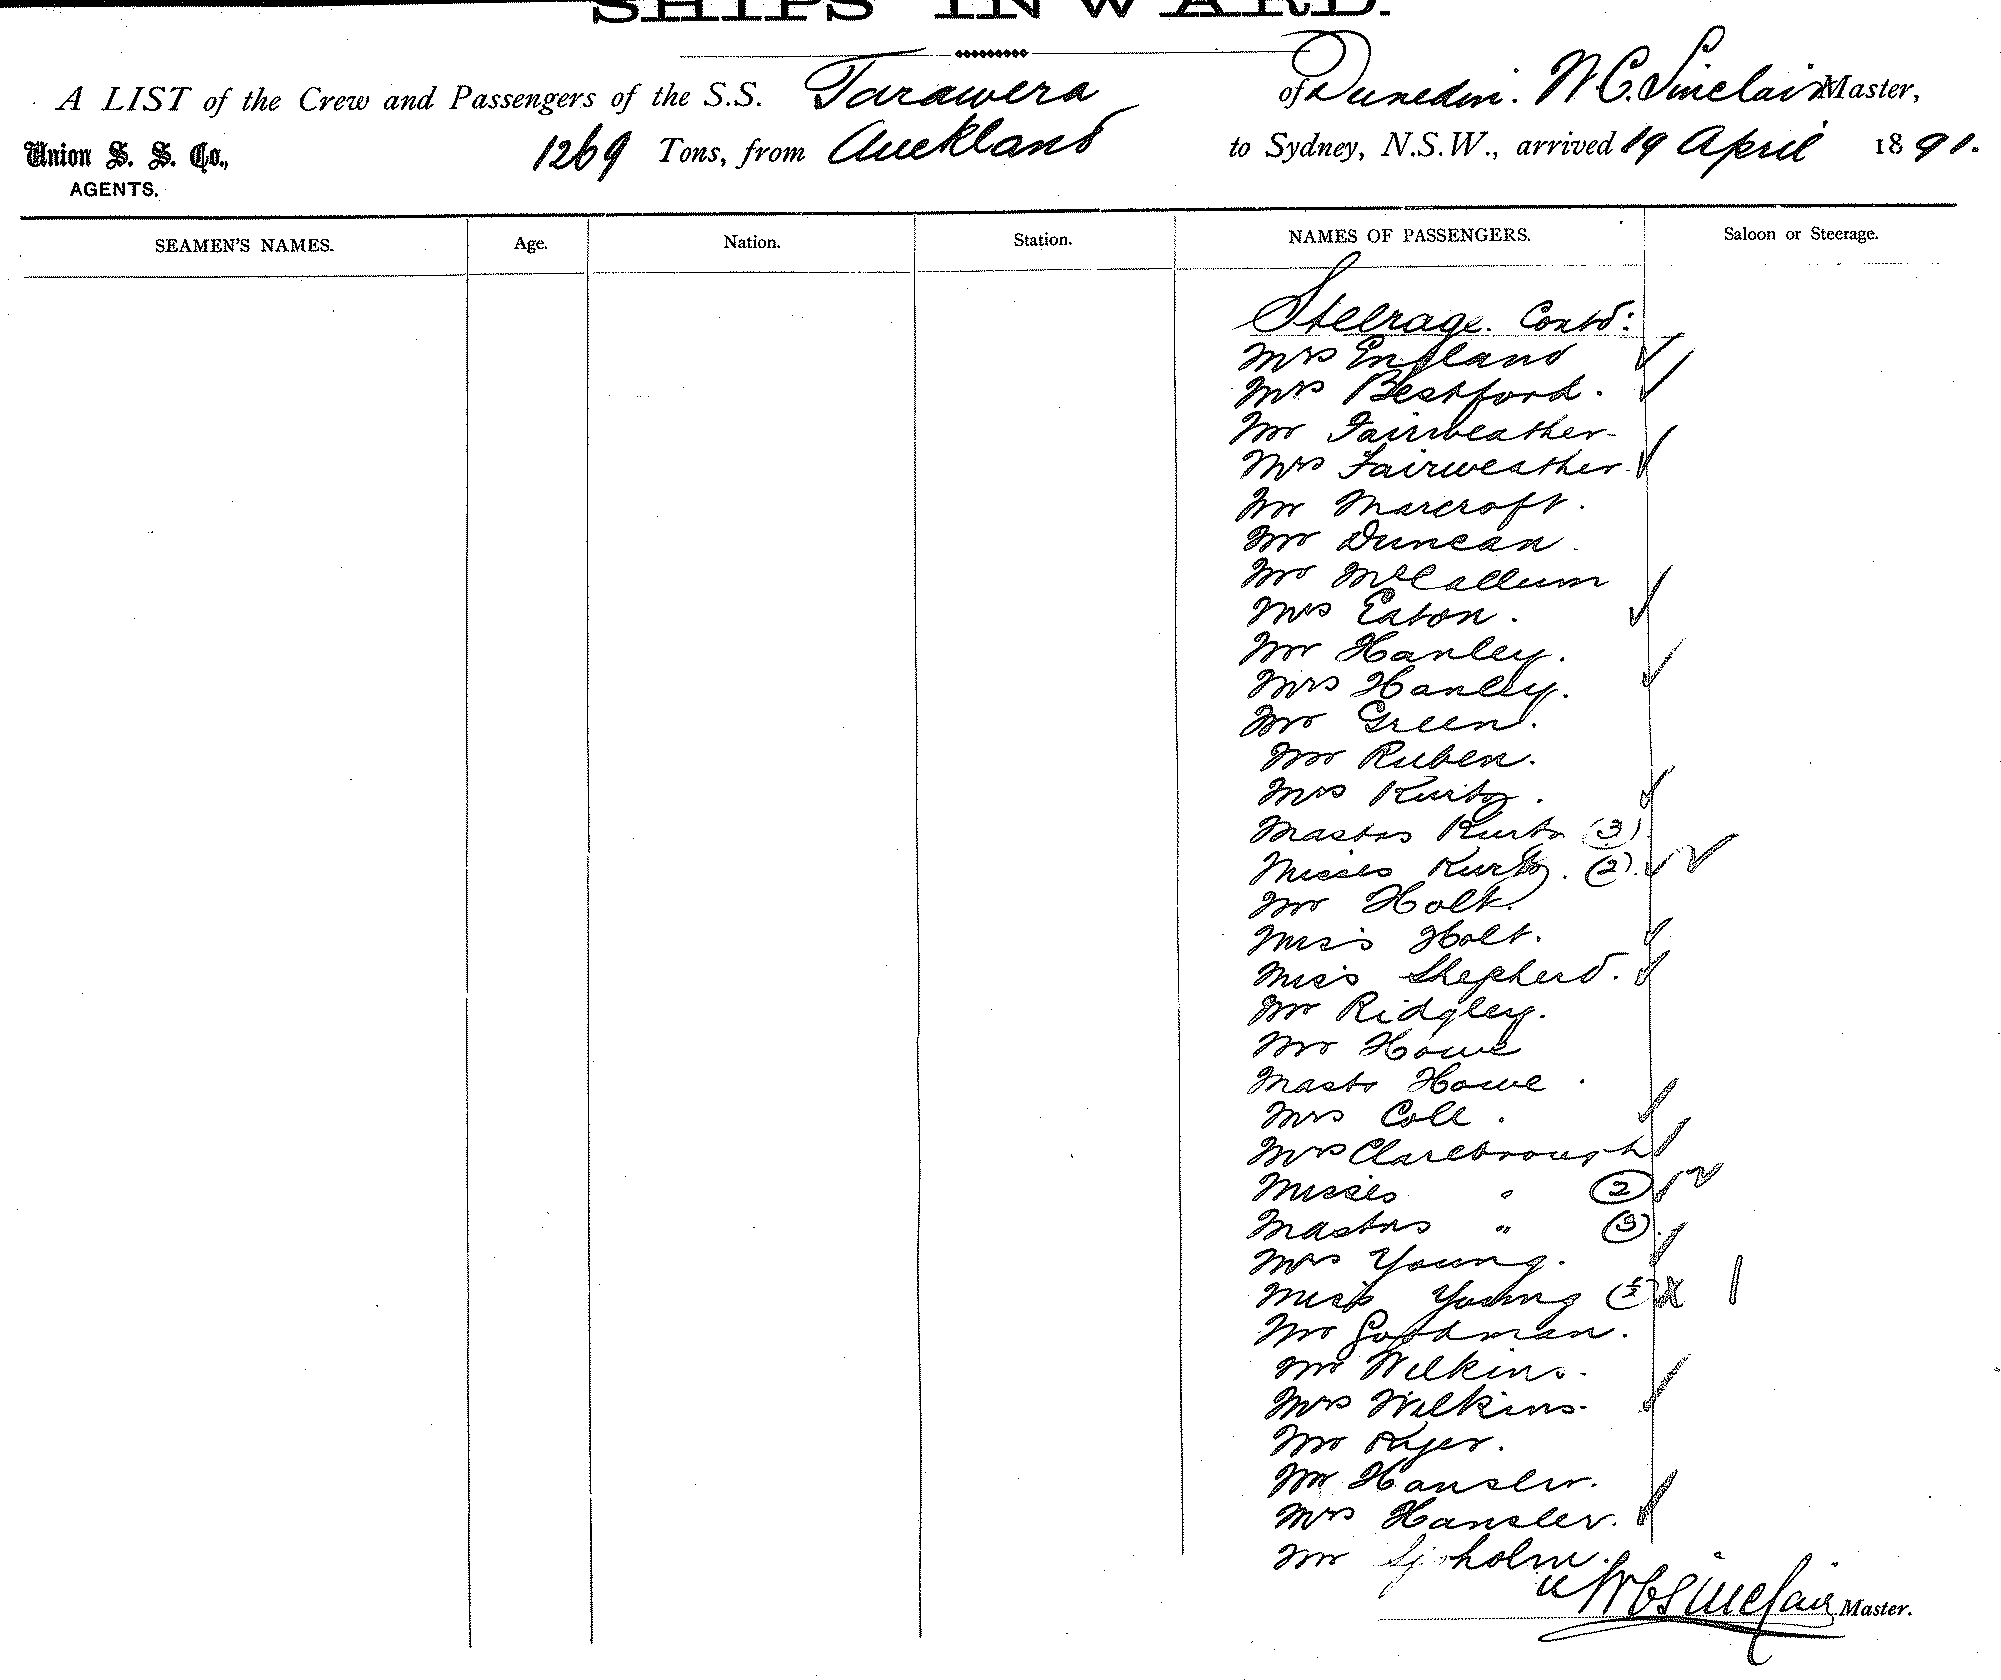 SHIPS INWARD.
A LIST of the Crew and Passengers of the S.S. Tarawera of Dunedin. W. C. Sinclair Master,
Union S. S. Co., 1269 Tons, from Auckland to Sydney, N.S.W., arrived 19 April 1891.
AGENTS.
SEAMEN'S NAMES. Age. Nation. Station. NAMES OF PASSENGERS. Saloon or Steerage.
Steerage. Contd:
Mrs England
Mrs Bestford.
Mr Fairweather
Mrs Fairweather
Mr Marcroft.
Mr Duncan.
Mr McCallum
Mrs Eaton.
Mr Hanley.
Mrs Hanley.
Mr Green.
Mr Ruben.
Mrs Kurtz.
Mastrs Kurtz (3)
Misses Kurtz. (2).
Mr Holt.
Miss Holt.
Miss Shepherd.
Mr Ridgley.
Mr Howe
Mastr Howe.
Mrs Cole.
Mrs Clarebrough
Misses " (2)
Mastrs " (3)
Mrs Young.
Miss Young (½) 1
Mr Goodman.
Mr Wilkins.
Mrs Wilkins.
Mr Ryer.
Mr Hansler.
Mrs Hansler.
Mr Sjoholm.
W C Sinclair Master.